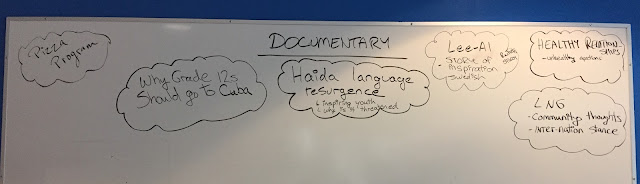 DOCUMENTARY
Pizza
Program
Why Grade 12s
Should go to Cuba
Haida language
resurgence
inspiring youth
threatened
Lee-Al
STORY of
inspiration
Swedish
HEALTHY RELATION
SHIPS
- unhealthy
LNG
- Community thoughts
- INTER-nation stance